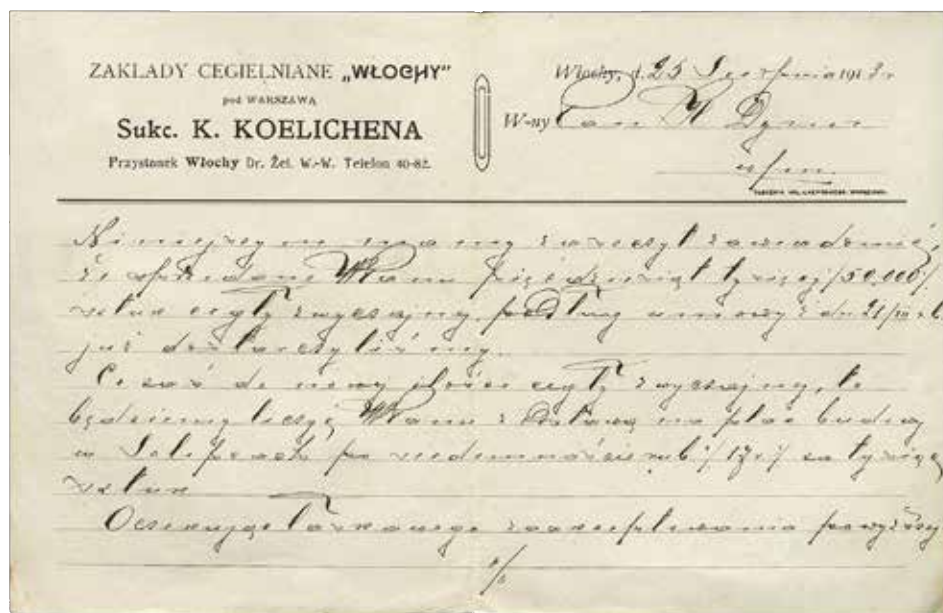 ZAKŁADY CEGIELNIANE „WŁOCHY”
pod WARSZAWĄ
Sukc. K. KOELICHENA
Przystanek Włochy Dr. Żel. W.-W. Telefon 40-82.
Włochy, d. 25 Sierpnia 1913 r
W-ny Pan
Niniejszym mamy zaszczyt zawiadomić,
że sprzedane WPanu pięćdziesiąt tysięcy /50,000/
sztuk cegły zwyczajnej, podług umowy z dn. 21/III r. b.
już dostarczyliśmy.
Co zaś do nowej ilości cegły zwyczajnej, to
będziemy liczyć WPanu z dostawą na plac budowy
w po siedemnaście rub /17 r/ za tysiąc
sztuk
Oczekując łaskawego zaakceptowania powyższej